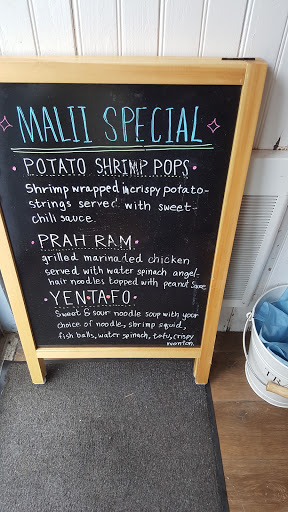 MALII SPECIAL
• POTATO SHRIMP POPS •
Shrimp wrapped in crispy potato-
strings served with sweet-
chili sauce.
• PRAH RAM •
grilled marinaded chicken
served with water spinach angel-
hair noodles topped with peanut sauce
• YEN•TA•FO •
Sweet & sour noodle soup with your
choice of noodle, shrimp squid,
fish balls, water spinach, tofu, crispy
wonton.